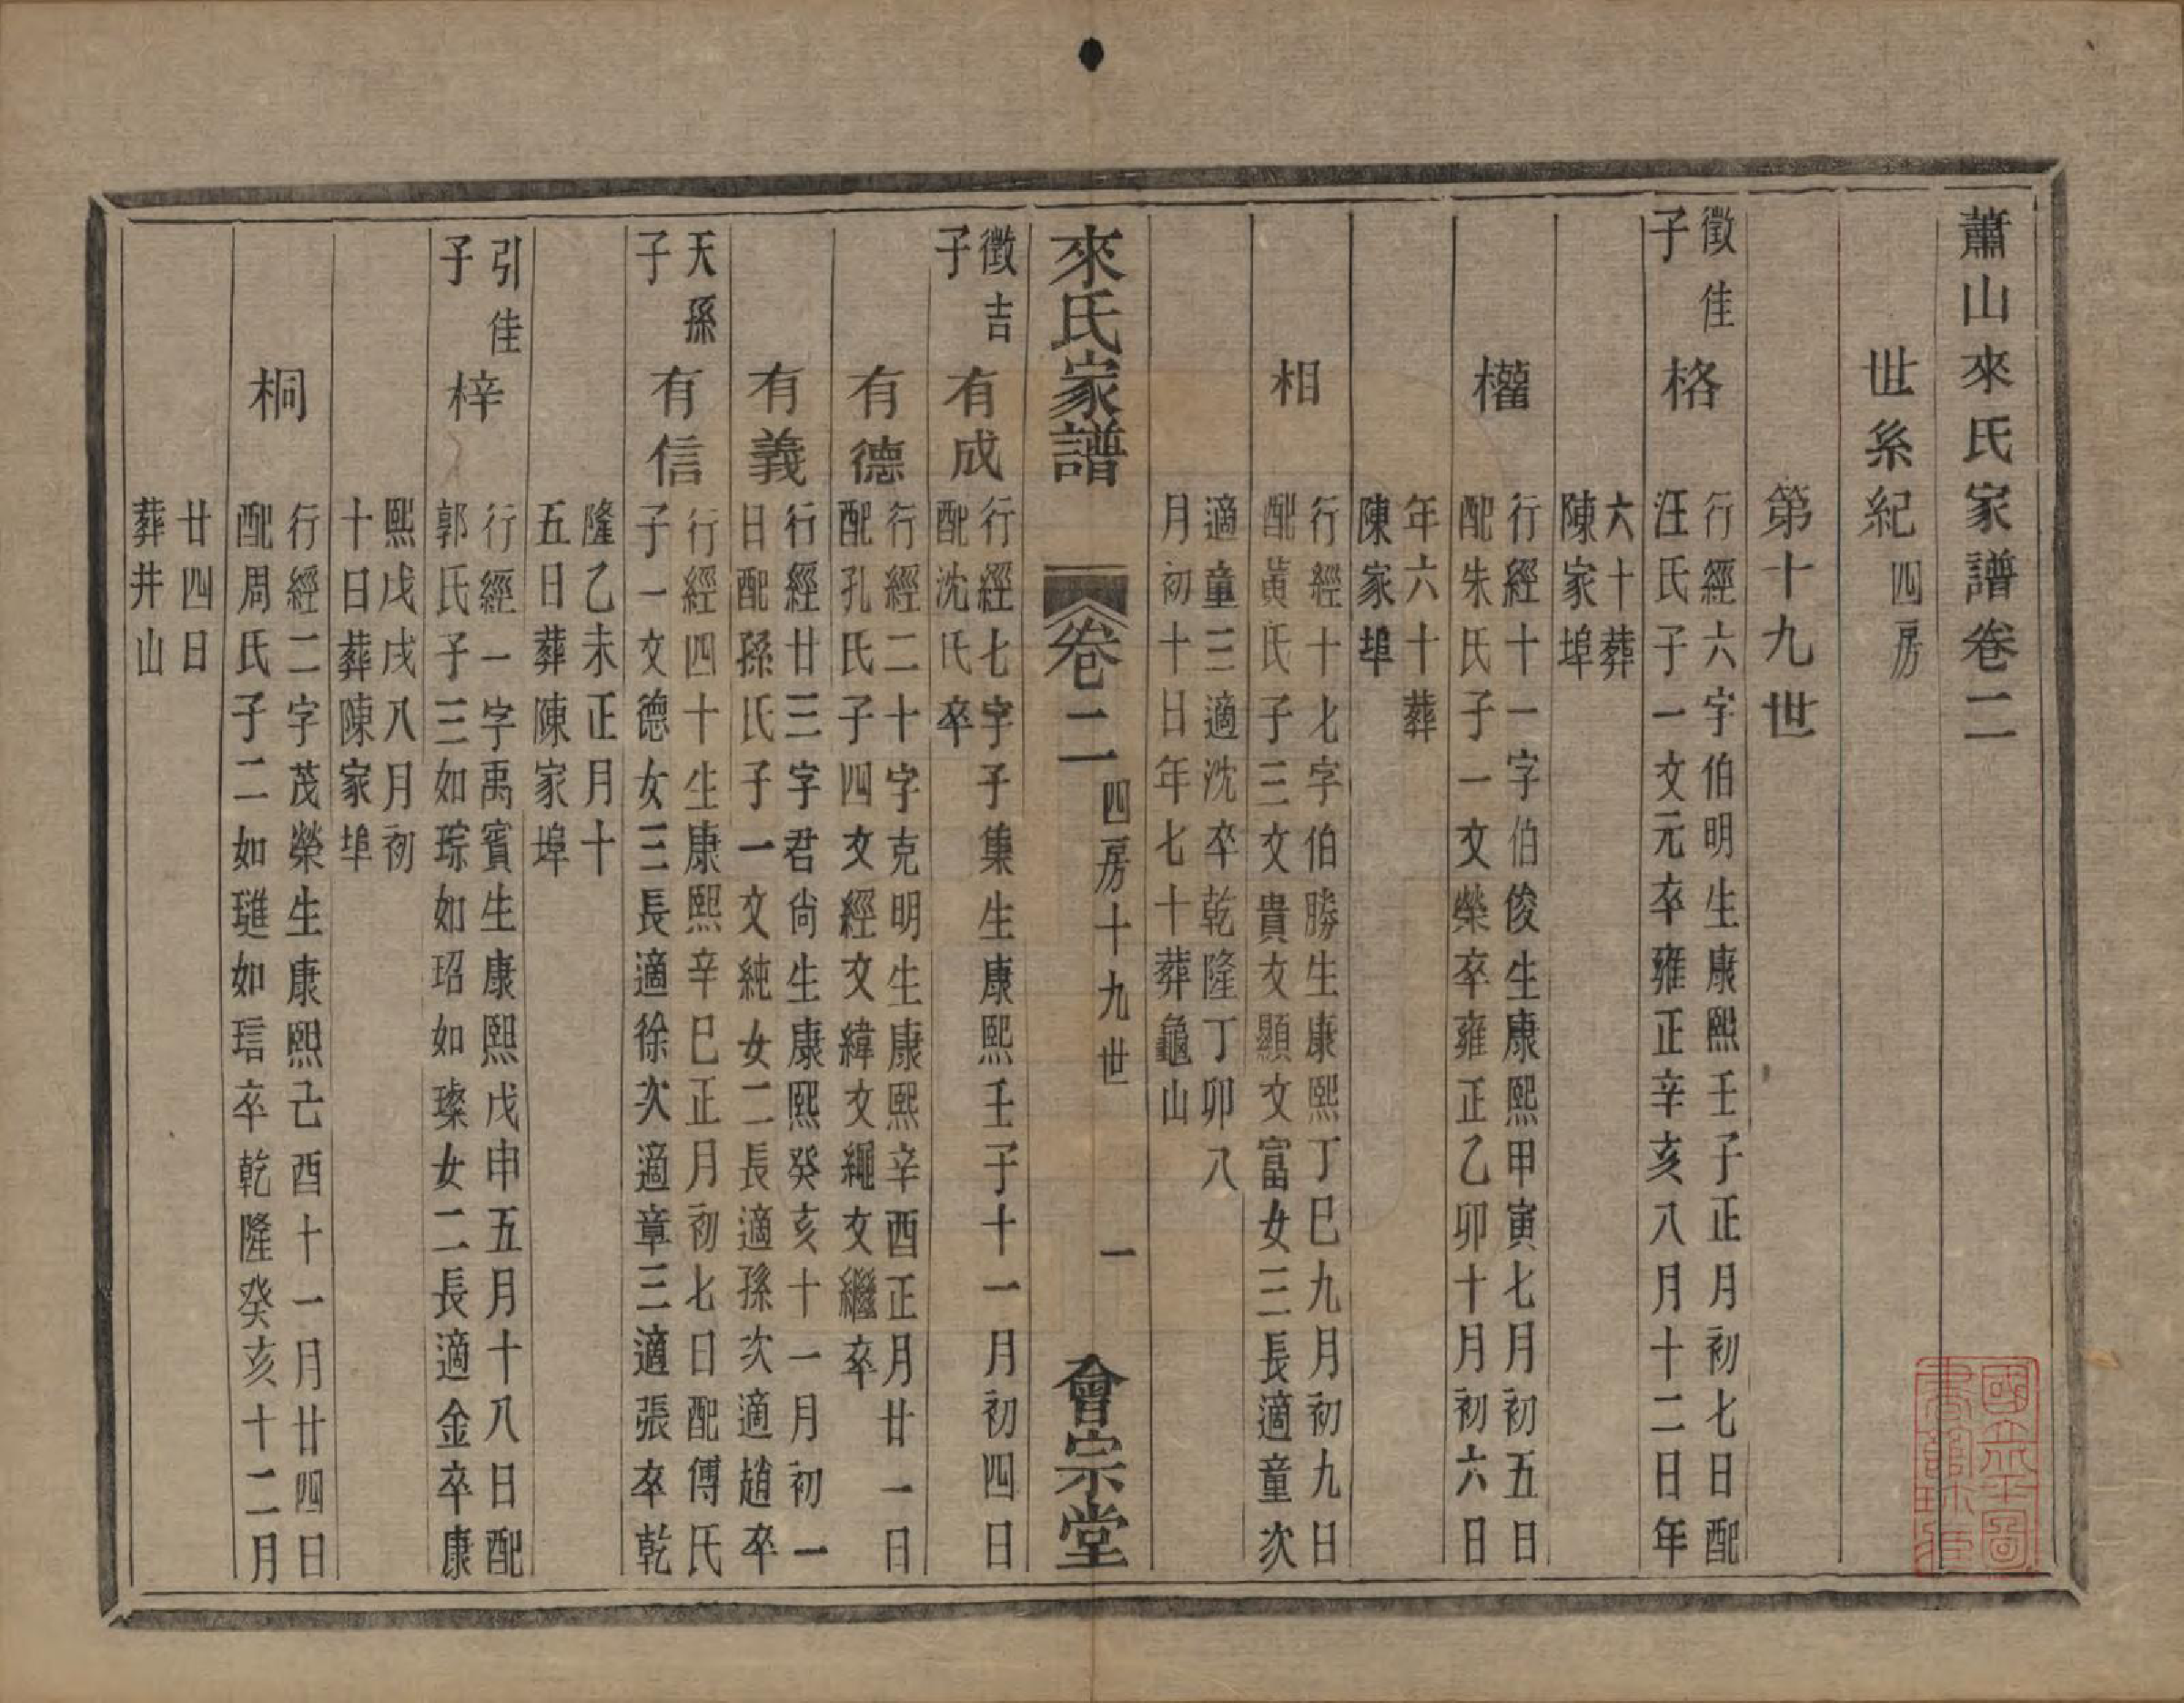 蕭山來氏家譜卷二
世系紀四房
第十九世
徵佳
子
格
行經六字伯明生康熙壬子正月初七日配
汪氏子一文元卒雍正辛亥八月十二日年
六十葬
陳家埠
權
行經十一字伯俊生康熙甲寅七月初五日
配朱氏子一文榮卒雍正乙卯十月初六日
年六十葬
陳家埠
相
行經十七字伯勝生康熙丁巳九月初九日
配黃氏子三文貴文顯文富女三長適童次
適童三適沈卒乾隆丁卯八
月初十日年七十葬龜山
來氏家譜
卷二
四房十九世
一
會宗堂
徵吉
子
有成
行經七字子集生康熙壬子十一月初四日
配沈氏卒
有德
行經二十字克明生康熙辛酉正月廿一日
配孔氏子四文經文緯文繩文繼卒
有義
行經廿三字君尙生康熙癸亥十一月初一
日配孫氏子一文純女二長適孫次適趙卒
天孫
子
有信
行經四十生康熙辛巳正月初七日配傅氏
子一文德女三長適徐次適章三適張卒乾
隆乙未正月十
五日葬陳家埠
引佳
子
梓
行經一字禹賓生康熙戊申五月十八日配
郭氏子三如琮如玿如璨女二長適金卒康
熙戊戌八月初
十日葬陳家埠
桐
行經二字茂榮生康熙己酉十一月廿四日
配周氏子二如璡如琂卒乾隆癸亥十二月
廿四日
葬井山
國立北平圖
書館珍藏